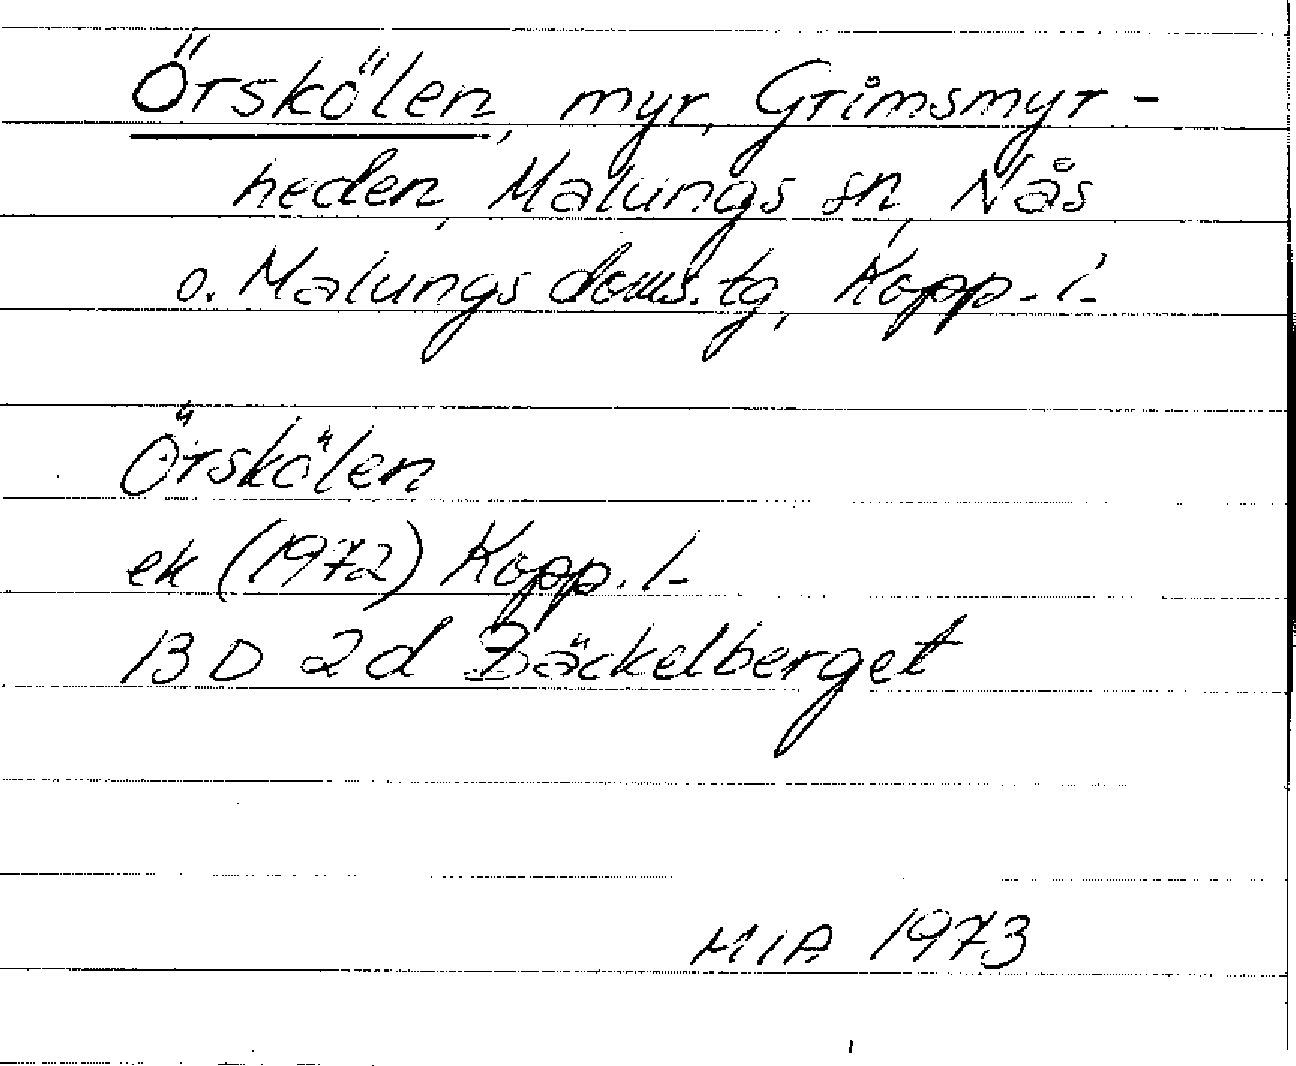 Örskölen, myr, Grimsmyr-
heden, Malungs sn, Nås
o. Malungs doms.tg, Kopp. l.
Örskölen
ek (1972) Kopp. l.
13 D 2d Bäckelberget
MIA 1973